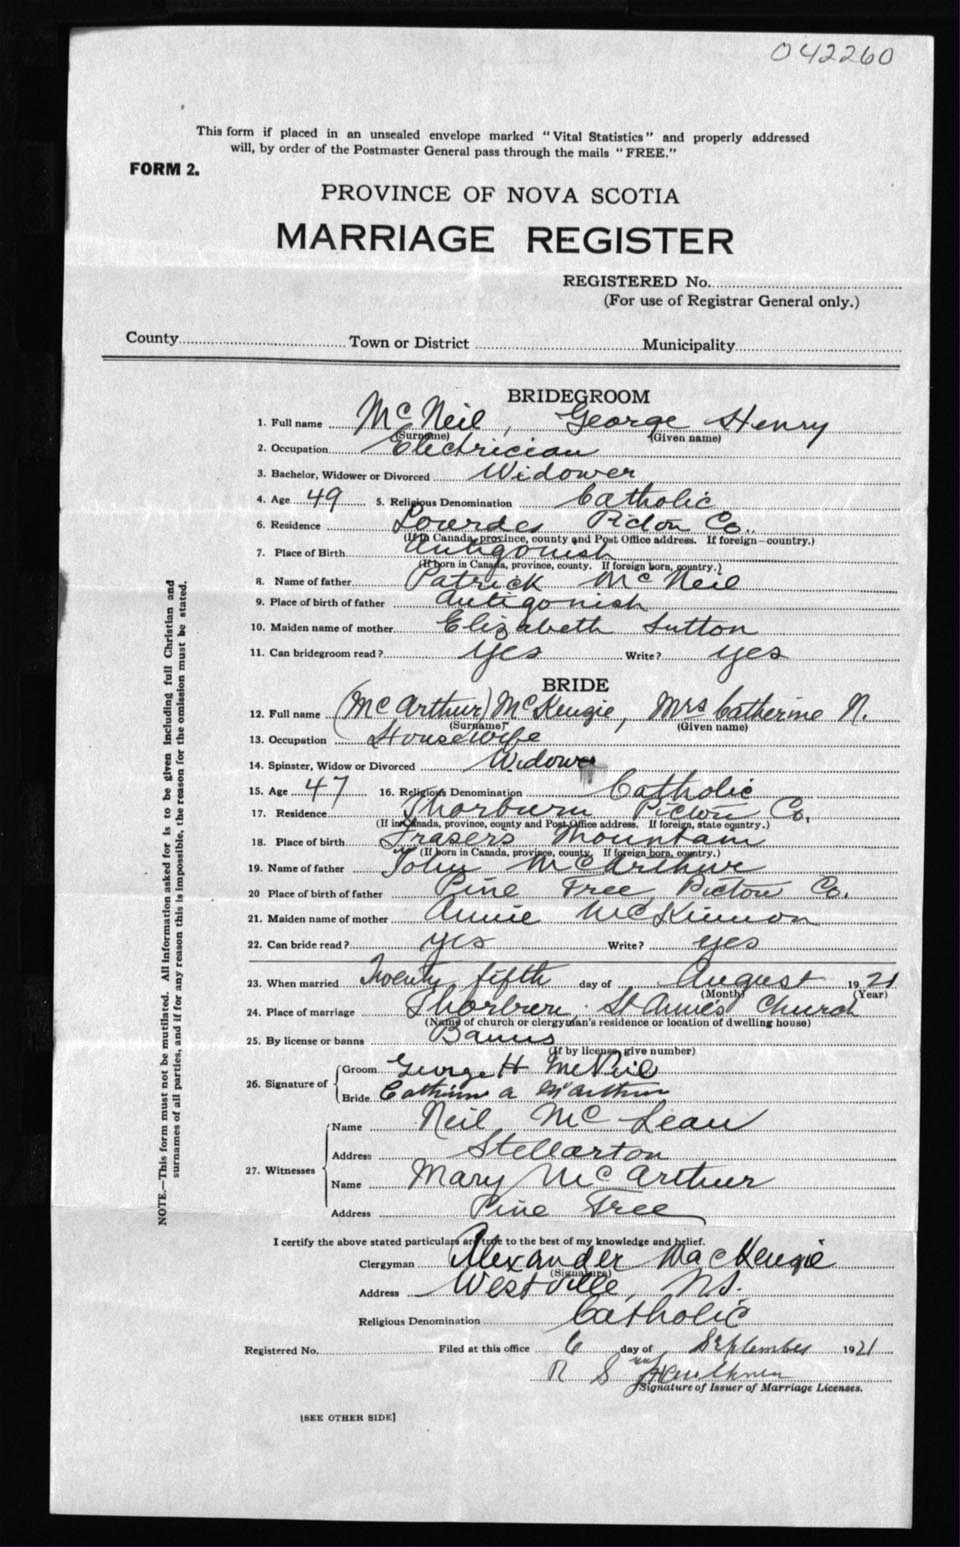 042260
This form if placed in an unsealed envelope marked "Vital Statistics" and properly addressed
will, by order of the Postmaster General pass through the mails "FREE."
FORM 2.
PROVINCE OF NOVA SCOTIA
MARRIAGE REGISTER
REGISTERED No.
(For use of Registrar General only.)
County Town or District Municipality
BRIDEGROOM
1. Full name McNeil, George Henry
(Surname) (Given name)
2. Occupation Electrician
3. Bachelor, Widower or Divorced Widower
4. Age 49 5. Religious Denomination Catholic
6. Residence Lourdes Pictou Co.
(If in Canada, province, county and Post Office address. If foreign—country.)
7. Place of Birth Antigonish
(If born in Canada, province, county. If foreign born, country.)
8. Name of father Patrick McNeil
9. Place of birth of father Antigonish
10. Maiden name of mother Elizabeth Sutton
11. Can bridegroom read? yes Write? yes
BRIDE
12. Full name (McArthur) McKenzie, Mrs Catherine N.
(Surname) (Given name)
13. Occupation Housewife
14. Spinster, Widow or Divorced Widow
15. Age 47 16. Religious Denomination Catholic
17. Residence Thorburn Pictou Co.
(If in Canada, province, county and Post Office address. If foreign, state country.)
18. Place of birth Frasers Mountain
(If born in Canada, province, county. If foreign born, country.)
19. Name of father John McArthur
20 Place of birth of father Pine Tree Pictou Co.
21. Maiden name of mother Annie McKinnon
22. Can bride read? yes Write? yes
23. When married Twenty fifth day of August 1921
(Month) (Year)
24. Place of marriage Thorburn, St Annes Church
(Name of church or clergyman's residence or location of dwelling house)
25. By license or banns Banns
(If by license, give number)
26. Signature of Groom George H McNeil
Bride Catherine A McArthur
27. Witnesses Name Neil McLean
Address Stellarton
Name Mary McArthur
Address Pine Tree
I certify the above stated particulars are true to the best of my knowledge and belief.
Clergyman Alexander MacKenzie
(Signature)
Address Westville, N.S.
Religious Denomination Catholic
Registered No. Filed at this office 6 day of September 1921
R S Faulkner
Signature of Issuer of Marriage Licenses.
[SEE OTHER SIDE]
NOTE.—This form must not be mutilated. All information asked for is to be given including full Christian and
surnames of all parties, and if for any reason this is impossible, the reason for the omission must be stated.